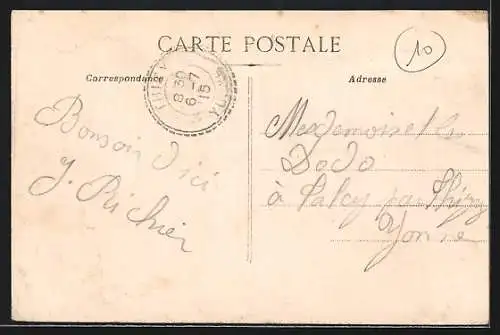 CARTE POSTALE
10
Correspondance
Adresse
8 30
6 - 7
15
Bonsoir d'ici
J. Richier
Mesdemoiselles
Dodo
à par Thizy
Yonne